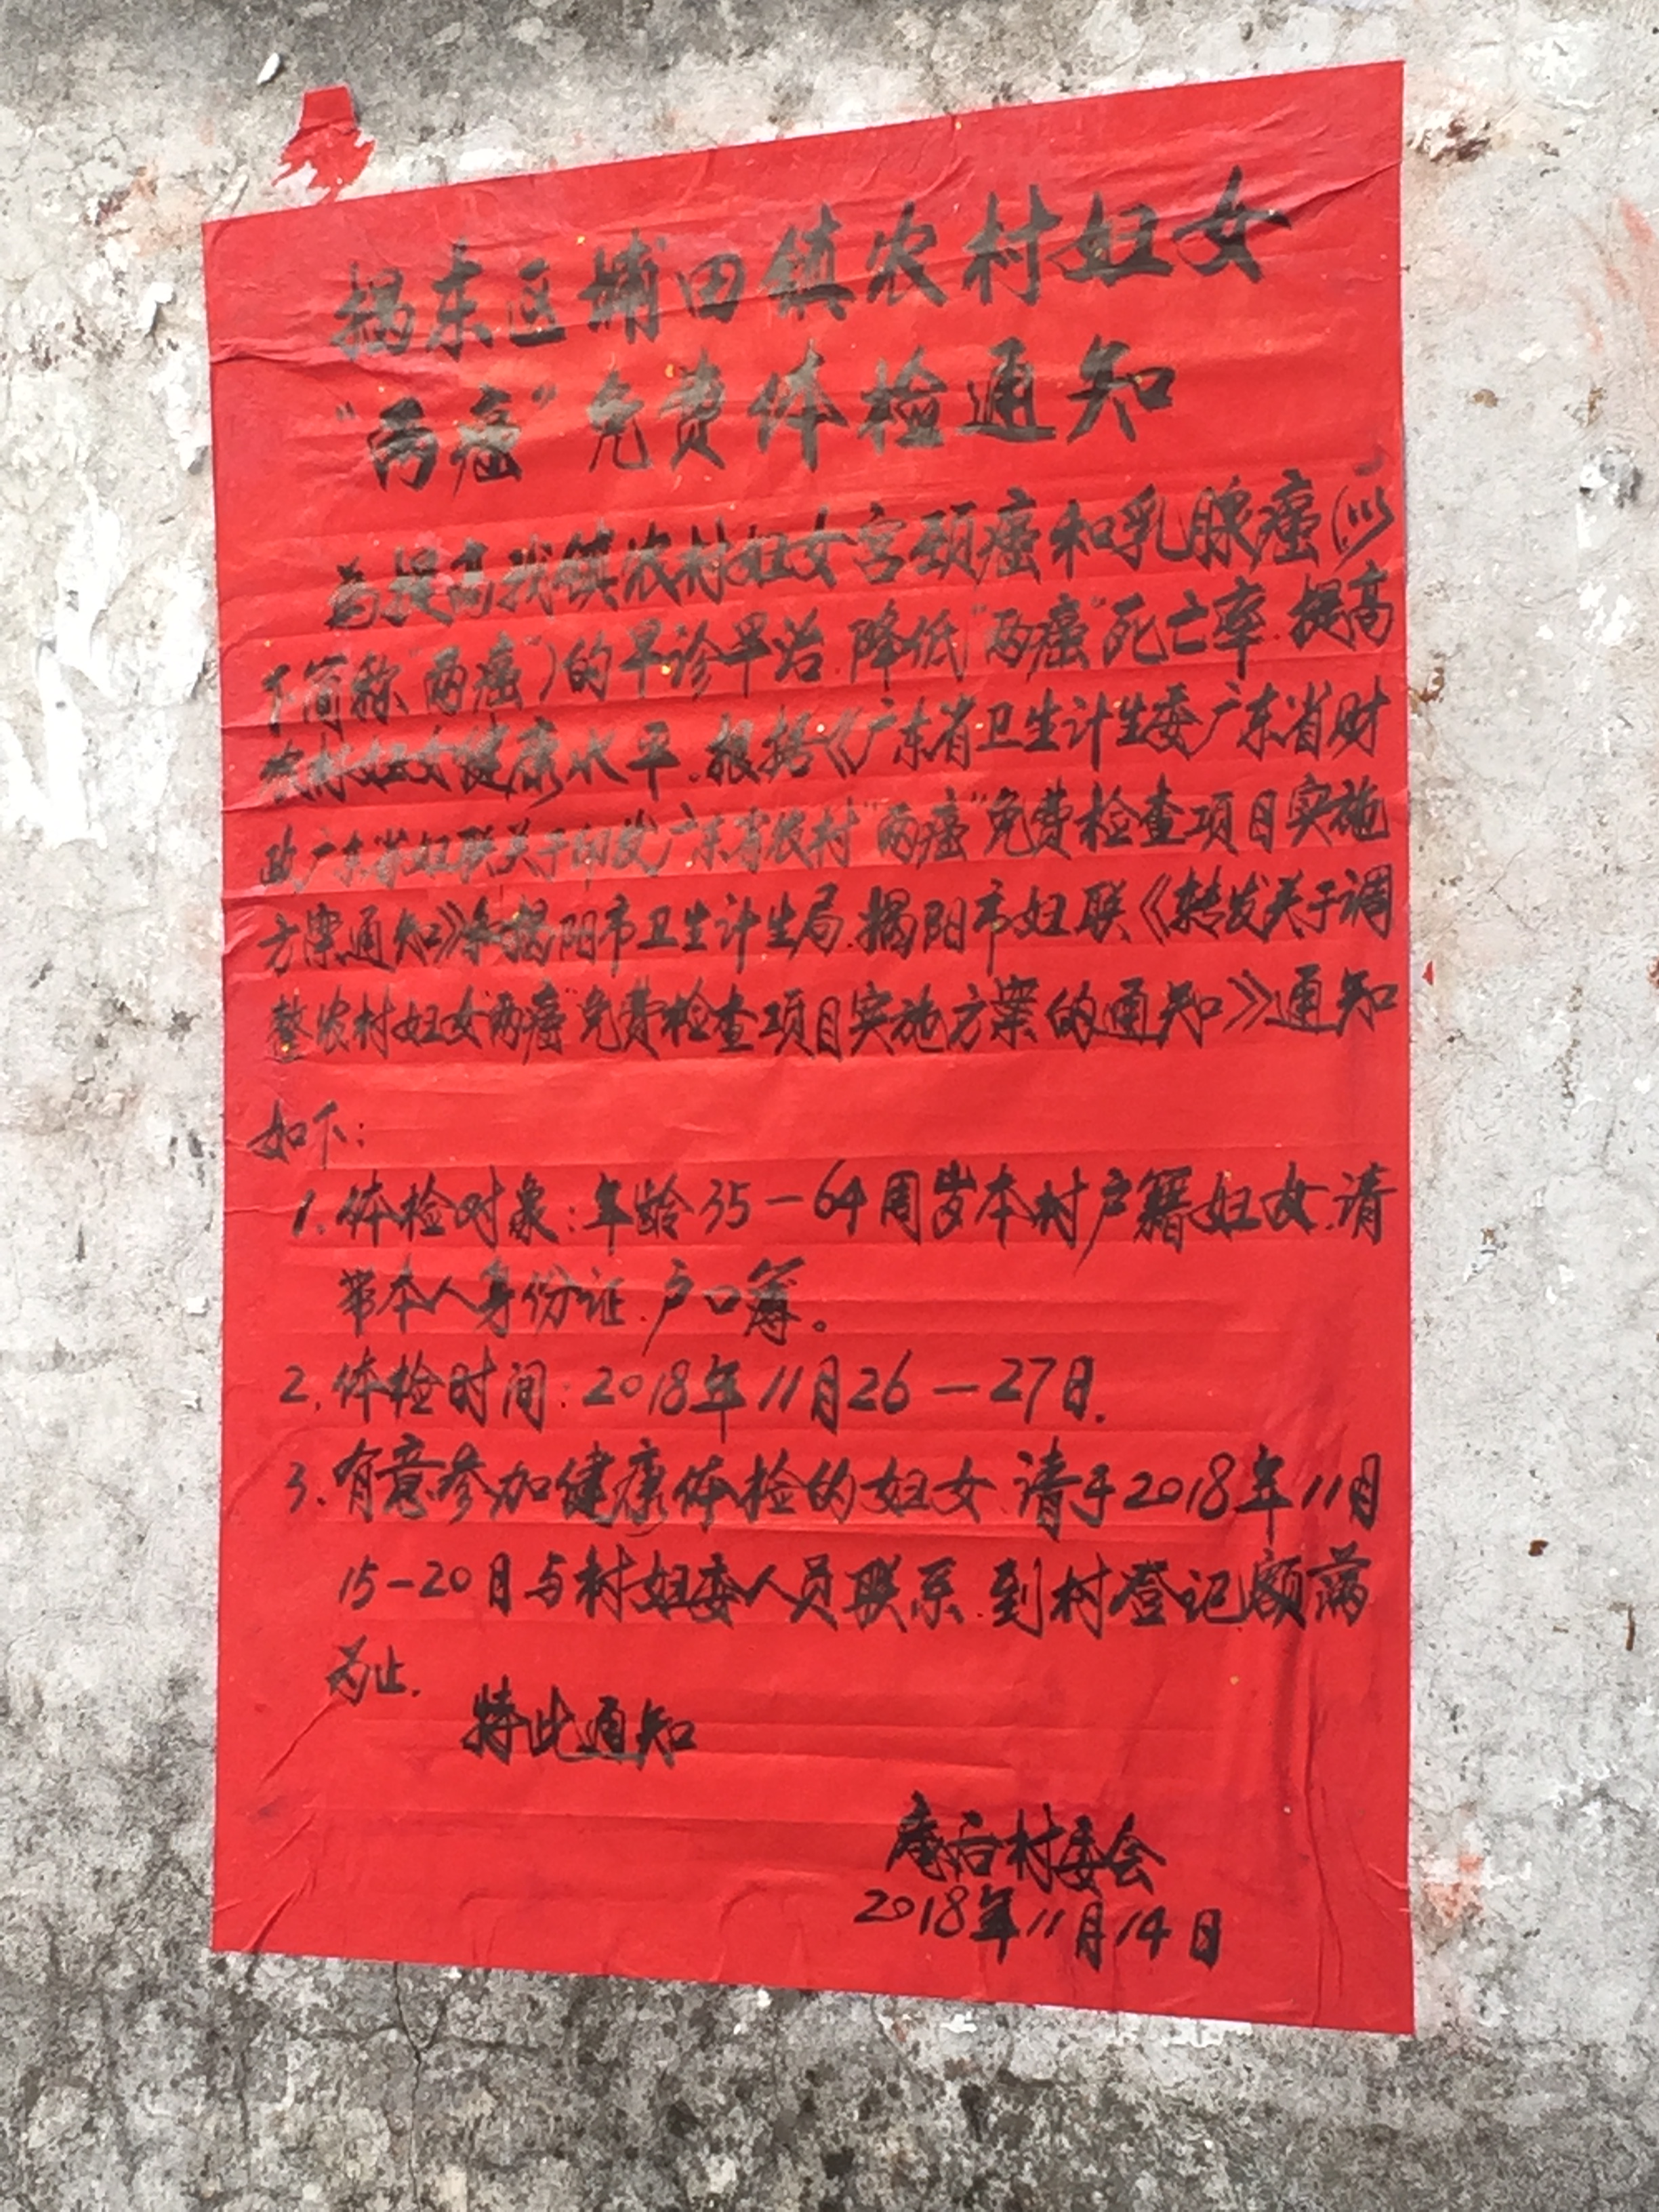 揭东区埔田镇农村妇女
“两癌”免费体检通知
为提高我镇农村妇女宫颈癌和乳腺癌(以
下简称“两癌”)的早诊早治.降低“两癌”死亡率.提高
农村妇女健康水平.根据《广东省卫生计生委广东省财
政广东省妇联关于印发广东省农村“两癌”免费检查项目实施
方案通知》和揭阳市卫生计生局.揭阳市妇联《转发关于调
整农村妇女“两癌”免费检查项目实施方案的通知》通知
如下:
1.体检对象:年龄35—64周岁本村户籍妇女.请
带本人身份证.户口簿。
2.体检时间:2018年11月26—27日.
3.有意参加健康体检的妇女.请于2018年11月
15-20日与村妇委人员联系.到村登记额满
为止.
特此通知
庵后村委会
2018年11月14日